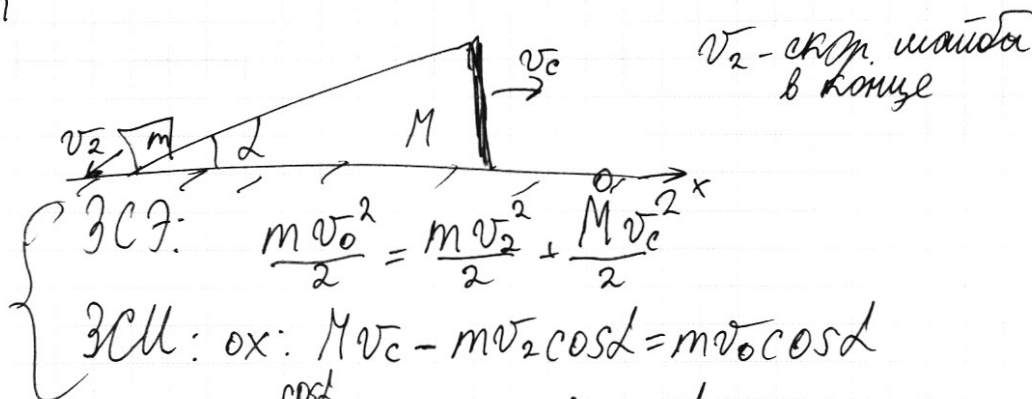 v₂ - скор. шайбы
в конце
v_c
v₂ m α M
x
ЗСЭ: mv₀²/2 = mv₂²/2 + Mv_c²/2
ЗСИ: ox: Mv_c - mv₂cosα = mv₀cosα
cosα